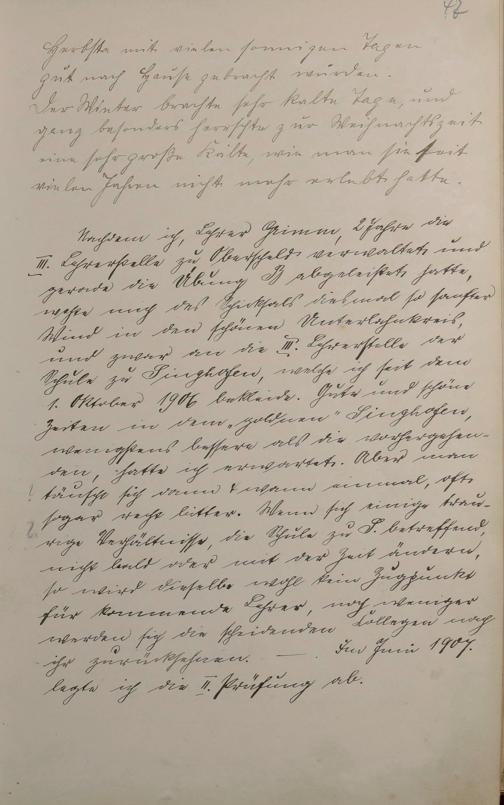 47
Herbste mit vielen sonnigen Tagen
gut nach Hause gebracht wurden.
Der Winter brachte sehr kalte Tage, und
ganz besonders herrschte zur Weihnachtszeit
eine sehr große Kälte, wie man sie seit
vielen Jahren nicht mehr erlebt hatte.
Nachdem ich, Lehrer Grimm, 2 Jahre die
III. Lehrerstelle zu Oberscheld verwaltet und
gerade die Übung B abgeleistet hatte,
wehte mich des Schicksals diesmal so sanfter
Wind in den schönen Unterlahnkreis,
und zwar an die III. Lehrerstelle der
Schule zu Singhofen, welche ich seit dem
1. Oktober 1906 bekleide. Gute und schöne
Zeiten in dem „goldnen" Singhofen,
wenigstens bessere als die vorhergehen-
den, hatte ich erwartet. Aber man
! täuscht sich dann & wann einmal, oft
sogar recht bitter. Wenn sich einige trau-
rige Verhältnisse, die Schule zu S. betreffend,
nicht bald oder mit der Zeit ändern,
so wird dieselbe wohl kein Zugpunkt
für kommende Lehrer, noch weniger
werden sich die scheidenden Collegen nach
ihr zurücksehnen. — Im Juni 1907.
legte ich die II. Prüfung ab.